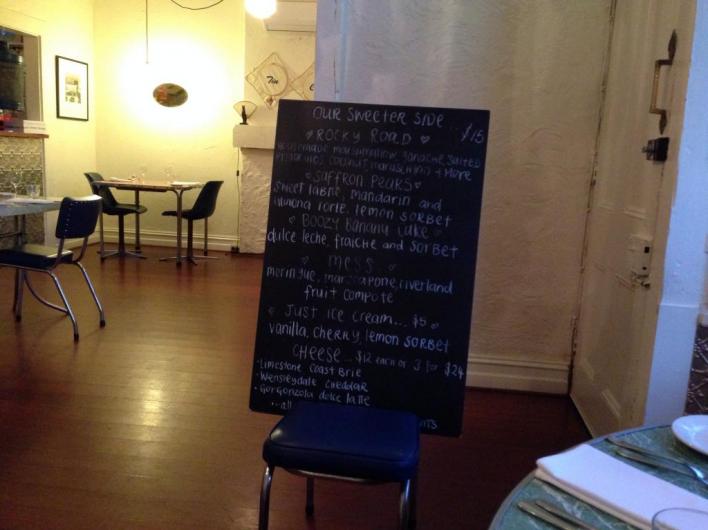 Tin
OUR SWEETER SIDE ... $15
ROCKY ROAD
marshmallow, ganache, salted
coconut, maraschino + MORE
SAFFRON PEARS
Sweet labne, mandarin and
torte, lemon SORBET
BOOZY Banana CAKE
dulce leche, fraiche and SORBET
MESS
meringue, marscapone, riverland
fruit compote
JUST ICE CREAM... $5
vanilla, CHERRY, lemon SORBET
CHEESE... $12 each or 3 for $24
- LIMESTONE COAST BRIE
- WENSLEYDALE CHEDDAR
- GORGONZOLA dolce latte
...all